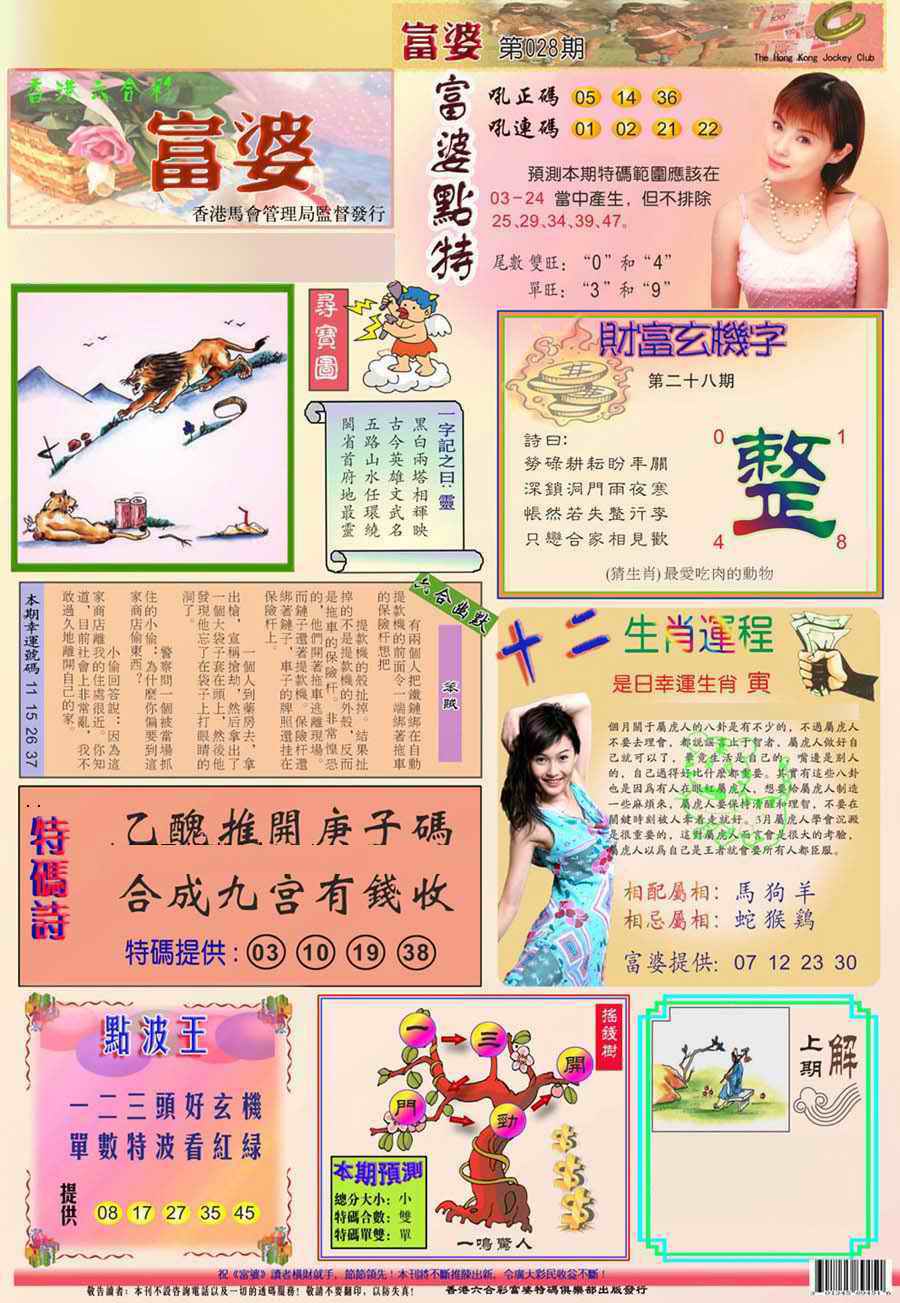 富婆 第028期
The Hong Kong Jockey Club
香港六合彩
富婆
香港馬會管理局監督發行
富婆點特
吼正碼 05 14 36
吼連碼 01 02 21 22
預測本期特碼範圍應該在
03-24 當中產生，但不排除
25、29、34、39、47。
尾數雙旺：“0”和“4”
單旺：“3”和“9”
尋寶圖
一字記之曰：靈
黑白兩塔相輝映
古今英雄文武名
五路山水任環繞
閩省首府地最靈
財富玄機字
第二十八期
詩曰：
勞碌耕耘盼年關
深鎖洞門雨夜寒
悵然若失整行李
只戀合家相見歡
0 1
整
4 8
(猜生肖)最愛吃肉的動物
六合幽默
笨賊
有兩個人把鐵鏈綁在自動
提款機的前面令一端綁著拖車
的保險杆想把
提款機的殼扯掉。結果扯
掉的不是提款機的外殼，反而
是拖車的保險杆。非常惶恐
的，他們開著拖車逃離現場。
而鏈子還著提款機。保險杆還
綁著鏈子，車子的牌照還挂在
保險杆上。
一個人到藥房去，拿
出槍，宣稱搶劫，然后拿出了
一個大袋子套在頭上，然後他
發現他忘了在袋子上打眼睛的
洞了。
警察問一個被當場抓
住的小偷：為什麼你偏要到這
家商店偷東西？
小偷回答說：因為這
家商店離我的住處很近。你知
道，目前社會上非常亂，我不
敢過久地離開自己的家。
本期幸運號碼 11 15 26 37
十二生肖運程
是日幸運生肖 寅
個月關于屬虎人的八卦是有不少的，不過屬虎人
不要去理會，都說謠言止于智者，屬虎人做好自
己就可以了，畢竟生活是自己的。嘴邊是別人
的，自己過得好比什麼都重要。其實有這些八卦
也是因爲有人在眼紅屬虎人，想要給屬虎人制造
一些麻煩來，屬虎人要保持清醒和理智，不要在
關鍵時刻被人牽着走就好。3月屬虎人學會沉澱
是很重要的，這對屬虎人而言會是很大的考驗，
屬虎人以爲自己是王者就會要所有人都臣服。
相配屬相：馬 狗 羊
相忌屬相：蛇 猴 鷄
富婆提供：07 12 23 30
特碼詩
乙醜推開庚子碼
合成九宮有錢收
特碼提供：03 10 19 38
點波王
一二三頭好玄機
單數特波看紅綠
提供 08 17 27 35 45
搖錢樹
一 三 開
門 勁
本期預測
總分大小：小
特碼合數：雙
特碼單雙：單
一鳴驚人
上期解
祝《富婆》讀者橫財就手，節節領先！本刊將不斷推陳出新，令廣大彩民收益不斷！
敬告讀者：本刊不設咨詢電話以及一切的透碼服務！敬請不要翻印，以防失真！ 香港六合彩富婆特碼俱樂部出版發行